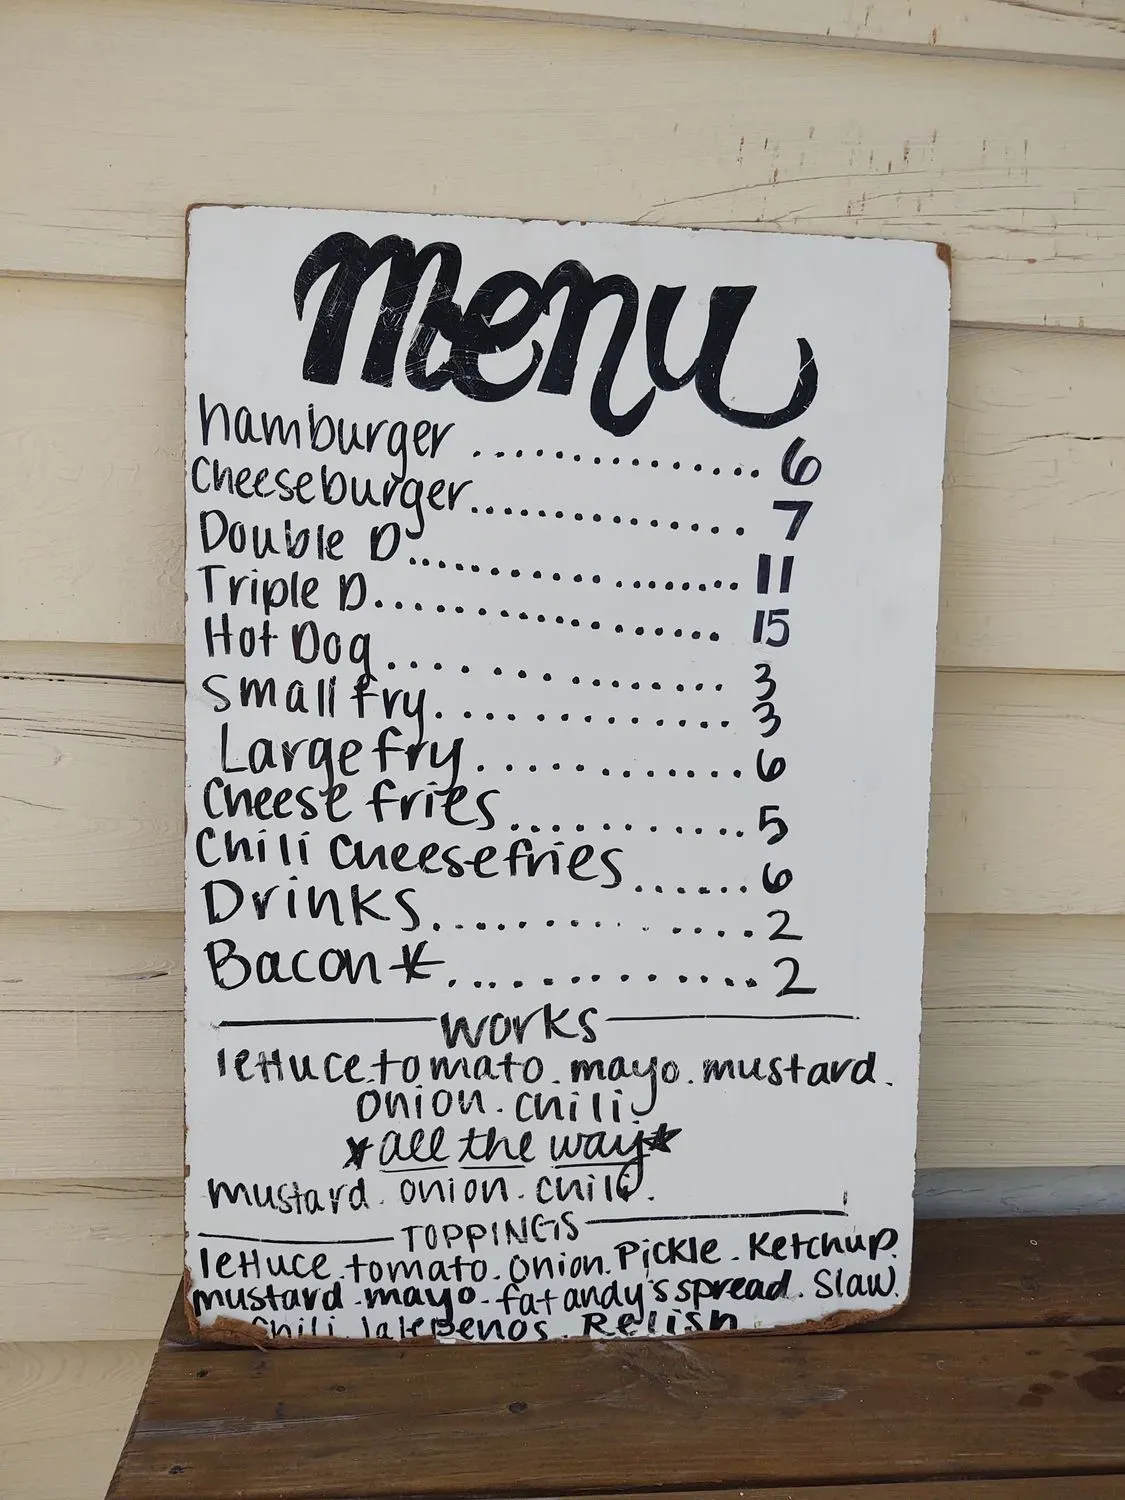 menu
hamburger ............... 6
Cheeseburger............... 7
Double D................. 11
Triple D................. 15
Hot Dog.............. 3
Small fry.............. 3
Large fry............ 6
Cheese fries........... 5
Chili Cheese fries...... 6
Drinks............. 2
Bacon*............. 2
WORKS
lettuce.tomato.mayo.mustard.
onion.chili.
*all the way*
mustard.onion.chili.
TOPPINGS
lettuce.tomato.onion.Pickle.Ketchup.
mustard.mayo.fat andy's spread.Slaw.
Chili.Jalepenos.Relish